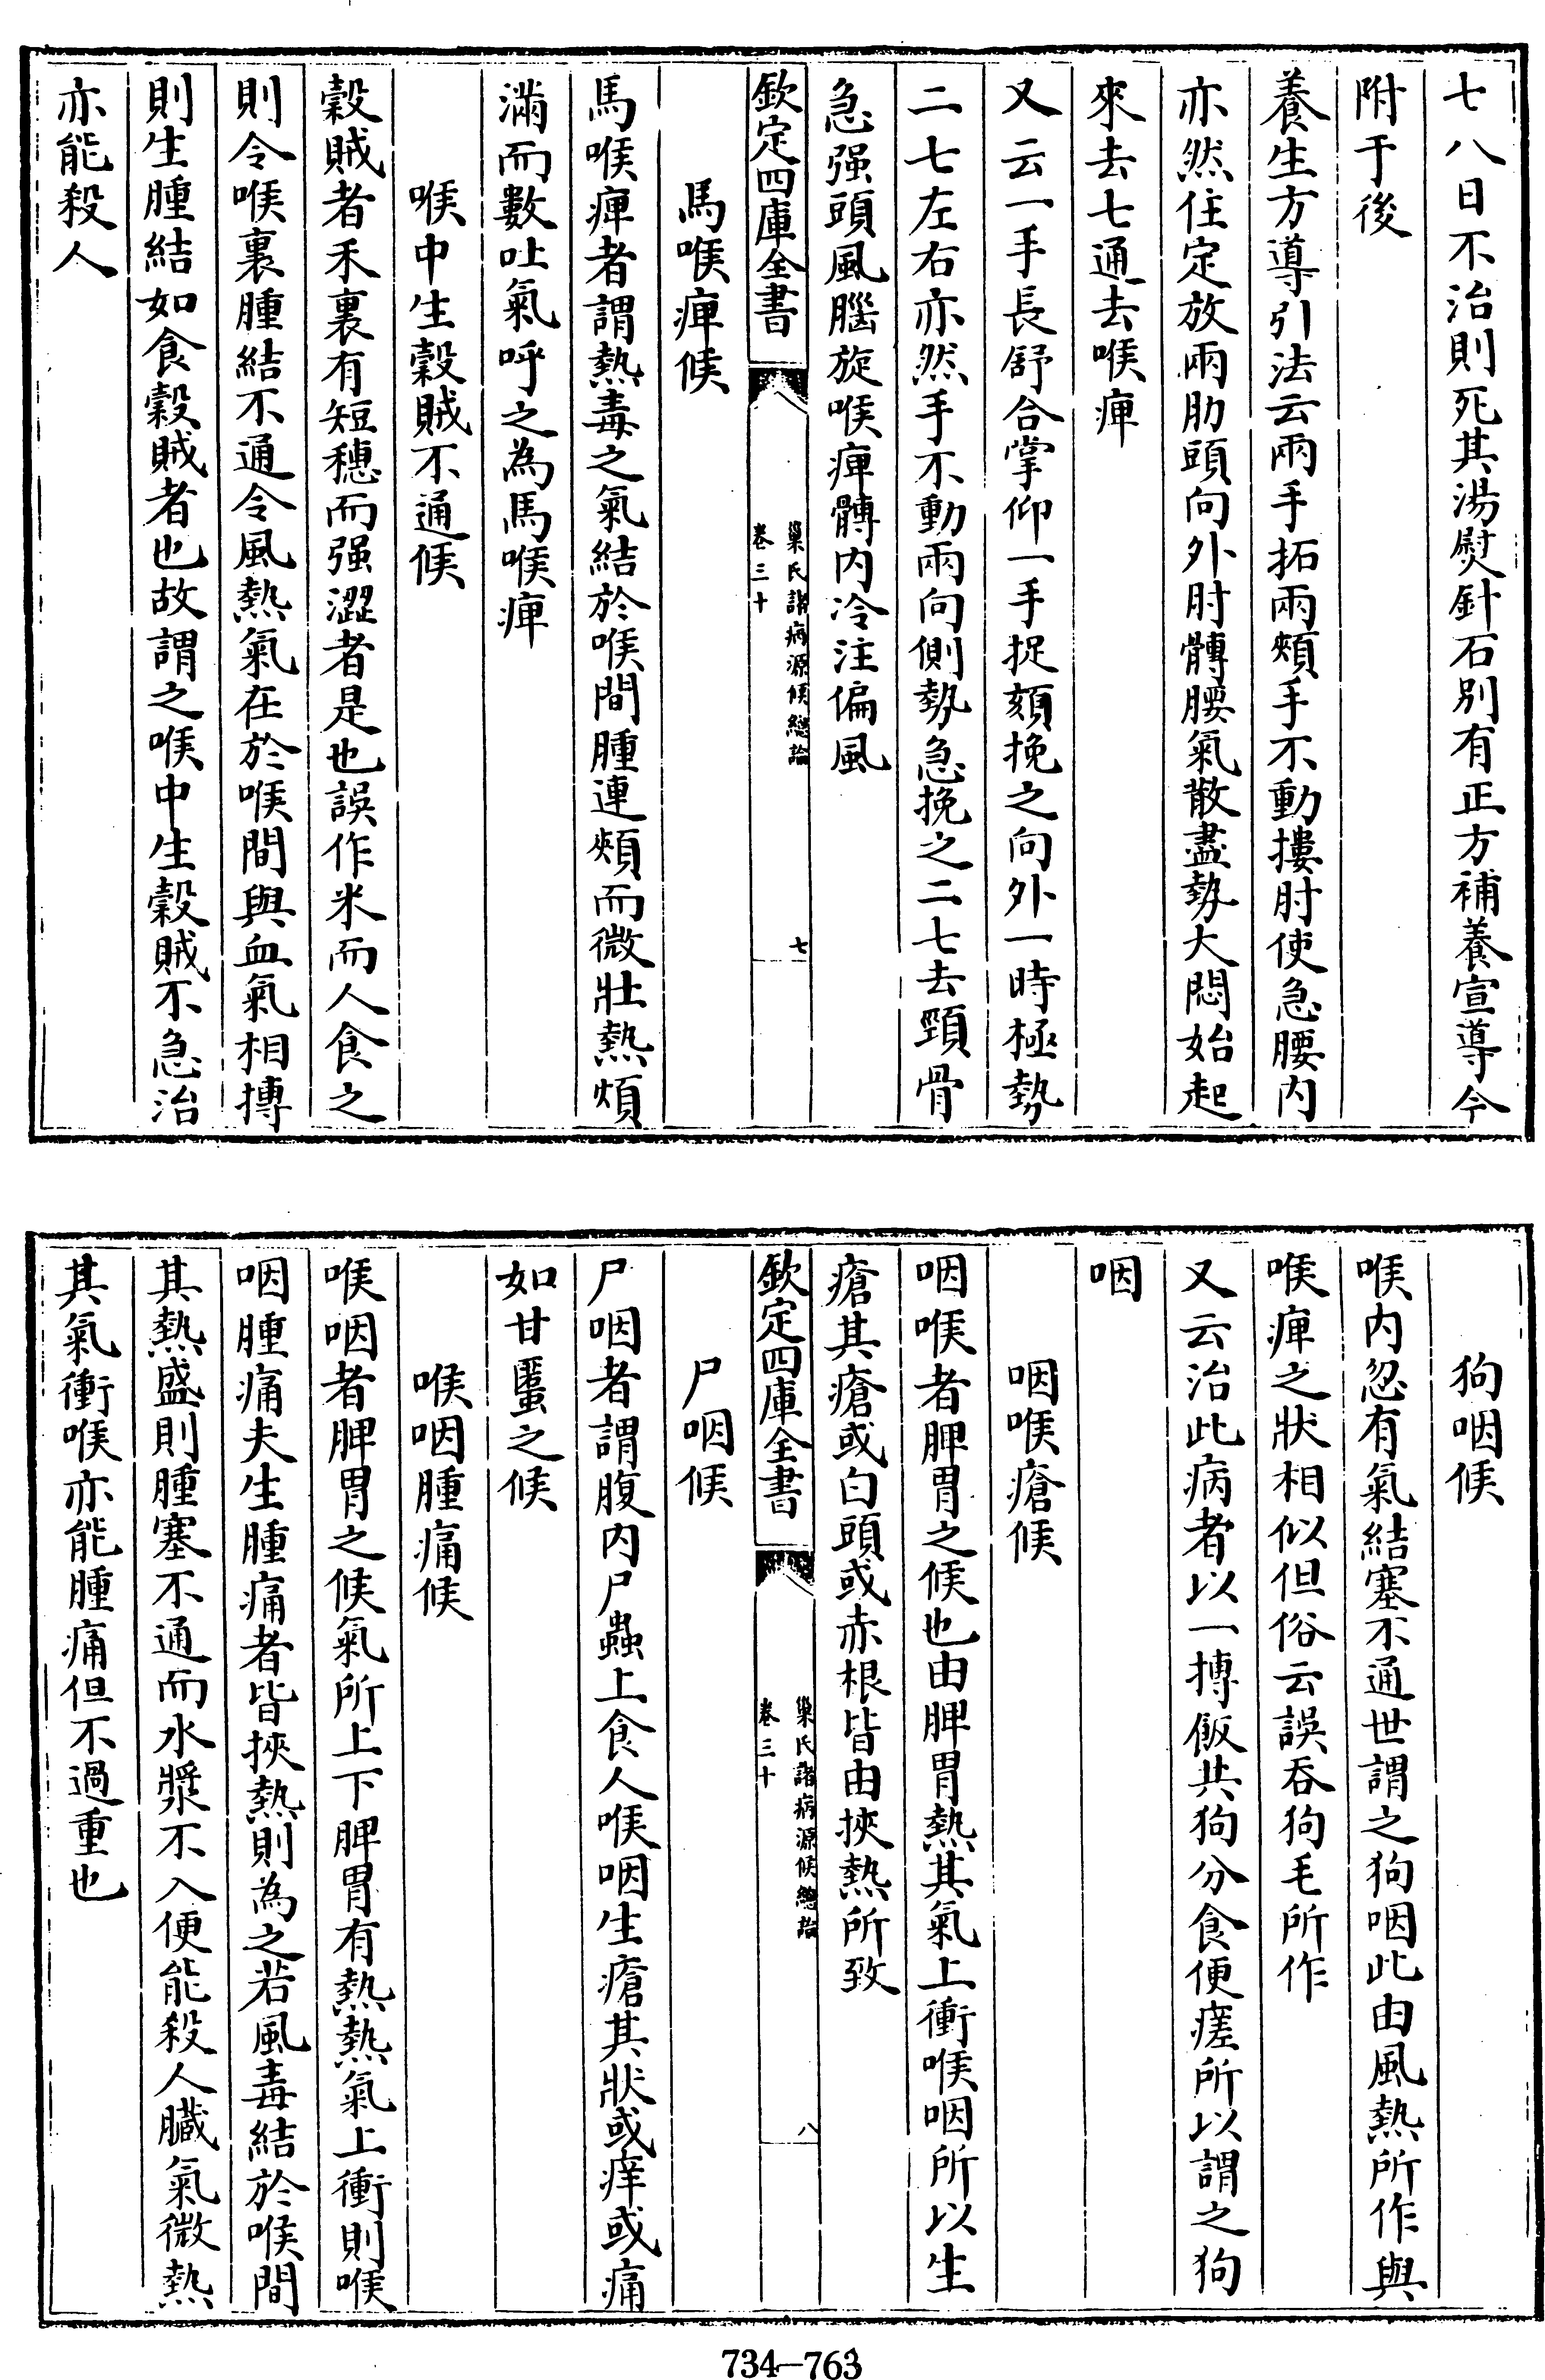 七八日不治則死其湯熨針石别有正方補養宣導今
附于後
養生方導引法云兩手拓兩頰手不動摟肘使急腰内
亦然住定放兩肋頭向外肘髆腰氣散盡勢大悶始起
來去七通去喉痺
又云一手長舒合掌仰一手捉頦挽之向外一時極勢
二七左右亦然手不動兩向側勢急挽之二七去頸骨
急强頭風腦旋喉痺髆内冷注偏風
欽定四庫全書
巢氏諸病源候總論
卷三十
七
馬喉痺候
馬喉痺者謂熱毒之氣結於喉間腫連頰而微壯熱煩
滿而數吐氣呼之為馬喉痺
喉中生穀賊不通候
穀賊者禾裏有短穗而强澀者是也誤作米而人食之
則令喉裏腫結不通令風熱氣在於喉間與血氣相摶
則生腫結如食穀賊者也故謂之喉中生穀賊不急治
亦能殺人
狗咽候
喉内忽有氣結塞不通世謂之狗咽此由風熱所作與
喉痺之狀相似但俗云誤吞狗毛所作
又云治此病者以一摶飯共狗分食便瘥所以謂之狗
咽
咽喉瘡候
咽喉者脾胃之候也由脾胃熱其氣上衝喉咽所以生
瘡其瘡或白頭或赤根皆由挾熱所致
欽定四庫全書
巢氏諸病源候總論
卷三十
八
尸咽候
尸咽者謂腹内尸蟲上食人喉咽生瘡其狀或痒或痛
如甘䘌之候
喉咽腫痛候
喉咽者脾胃之候氣所上下脾胃有熱熱氣上衝則喉
咽腫痛夫生腫痛者皆挾熱則為之若風毒結於喉間
其熱盛則腫塞不通而水漿不入便能殺人臟氣微熱
其氣衝喉亦能腫痛但不過重也
734—763